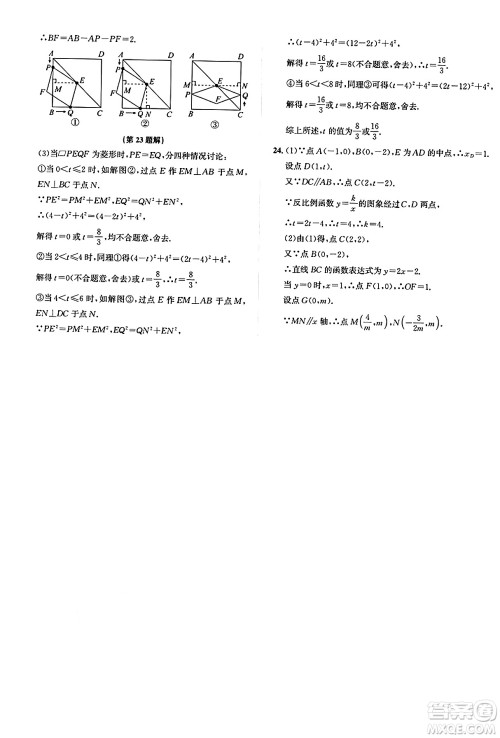 ∴BF=AB-AP-PF=2.
A D A D A D
P E P E M E N
M M P Q
F F F
B→Q C B N Q C B C
① ② ③
(第 23 题解)
(3)当□PEQF 为菱形时,PE=EQ,分四种情况讨论:
①当 0<t≤2 时,如解图①,过点 E 作 EM⊥AB 于点 M,
EN⊥BC 于点 N.
∵PE²=PM²+EM²,EQ²=EN²+NQ²,
∴(4-t)²+4²=(4-2t)²+4²,
解得 t=0 或 t=8/3,均不合题意,舍去.
②当 2<t≤4 时,同理①得(4-t)²+4²=(2t-4)²+4²,
解得 t=0(不合题意,舍去)或 t=8/3,∴t=8/3.
③当 4<t≤6 时,如解图③,过点 E 作 EM⊥AB 于点 M,
EN⊥DC 于点 N.
∵PE²=PM²+EM²,EQ²=EN²+NQ²,
∴(t-4)²+4²=(12-2t)²+4²,
解得 t=16/3 或 t=8(不合题意,舍去),∴t=16/3.
④当 6<t≤8 时,同理③得(t-4)²+4²=(2t-12)²+4²,
解得 t=16/3(不合题意,舍去)或 t=8,∴t=8.
综上所述,t 的值为 8/3 或 16/3 或 8.
24. (1)∵点 A(-1,0),B(0,-2),E 为 AD 的中点,∴x_D=1.
设点 D(1,t).
又∵DC∥AB,∴点 C(2,t-2).
∵反比例函数 y=k/x 的图象经过点 C,D,
∴t=2t-4,∴t=4,∴k=4.
(2)由(1)得,点 C(2,2),
又∵点 B(0,-2),
∴直线 BC 的函数表达式为 y=2x-2.
当 y=0 时,x=1,∴点 F(1,0),∴OF=1.
设点 G(0,m).
∵MN∥x 轴,∴点 M(4/m,m),N(-3/2m,m).
答案圈
MXQE.COM